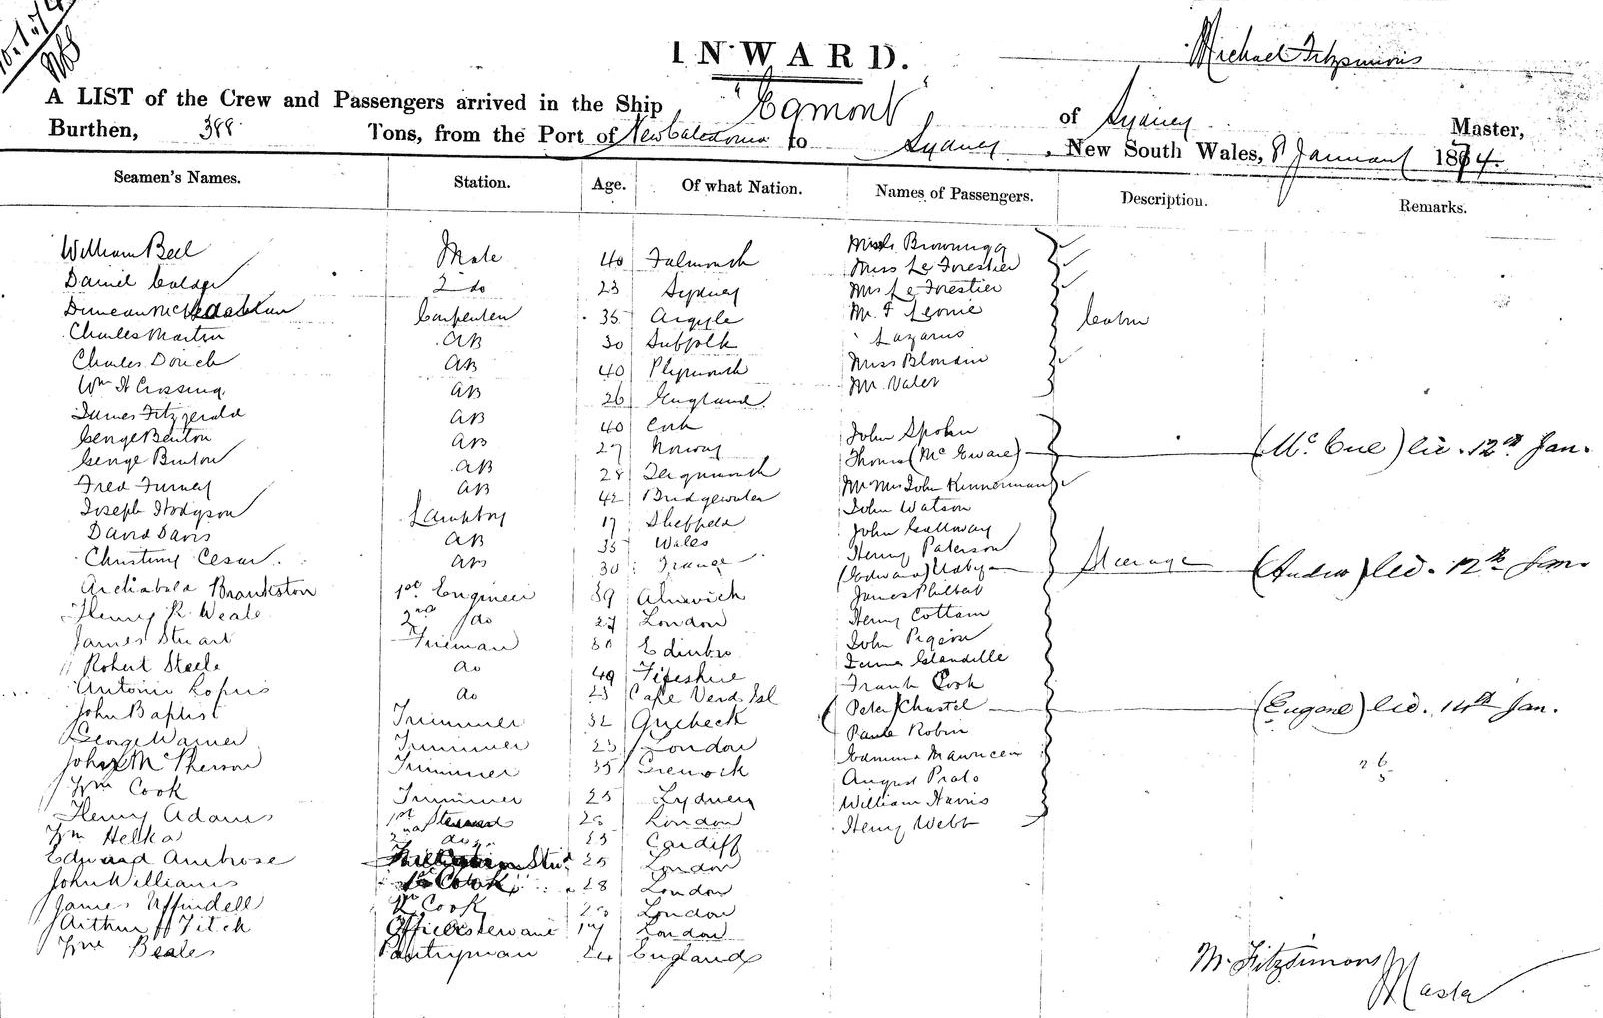 10.1.74
INWARD.
Michael Fitzsimons
A LIST of the Crew and Passengers arrived in the Ship "Egmont" of Sydney Master,
Burthen, 388 Tons, from the Port of New Caledonia to Sydney, New South Wales, 8 January 1874.
Seamen's Names. Station. Age. Of what Nation. Names of Passengers. Description. Remarks.
William Bell Mate 40 Falmouth Brownrigg
Daniel Calder 2 do 23 Sydney Miss Le Forestier
Duncan Carpenter 35 Argyle Mrs Le Forestier
Charles Martin AB 30 Suffolk Mr F Leonie Cabin
Charles Dorich AB 40 Plymouth Lazarus
Wm H Crossing AB 26 England Miss Blondin
James Fitzgerald AB 40 Cork Mr Valet
George Benton AB 27 Norway John Spohn
George Binton AB 28 Teignmouth Thomas (McEware) (McCue) lic. 12th Jan.
Fred Furney AB 42 Bridgewater Mr Mrs John Kinnerman
Joseph Hodgson Lamptry 17 Sheffield John Watson
David Davis AB 35 Wales John Galloway
Christiny Cesar AB 30 France Henry Paterson
Archibald Brankston 1st Engineer 39 Alnwick (Edward) Steerage (Andrew) lic. 12th Jan.
Henry R Weale 2nd do 27 London James Philbat
James Stuart Fireman 30 Edinbro Henry Cottam
Robert Steele do 49 Fifeshire John Pigeon
Antonio Lopus do 23 Cape Verd Isl James Glandille
John Baptist Trimmer 32 Quebeck Frank Cook
George Warner Trimmer 23 London (Peter) Chastel (Eugene) lic. 14th Jan.
John McPherson Trimmer 35 Grenock Paule Robin
Wm Cook Trimmer 25 Lydney Edmund Mawncen
Henry Adams 1st Steward 28 London August Prato
Wm Helka 2nd do 23 Cardiff William Harris
Edward Ambrose Stwd 25 London Henry Webb
John Williams 1st Cook 28 London
James Uffindell 2n Cook London
Arthur Fitch Officers servant 17 London
Wm Beales Pantryman 24 England
M. Fitzsimons
Master